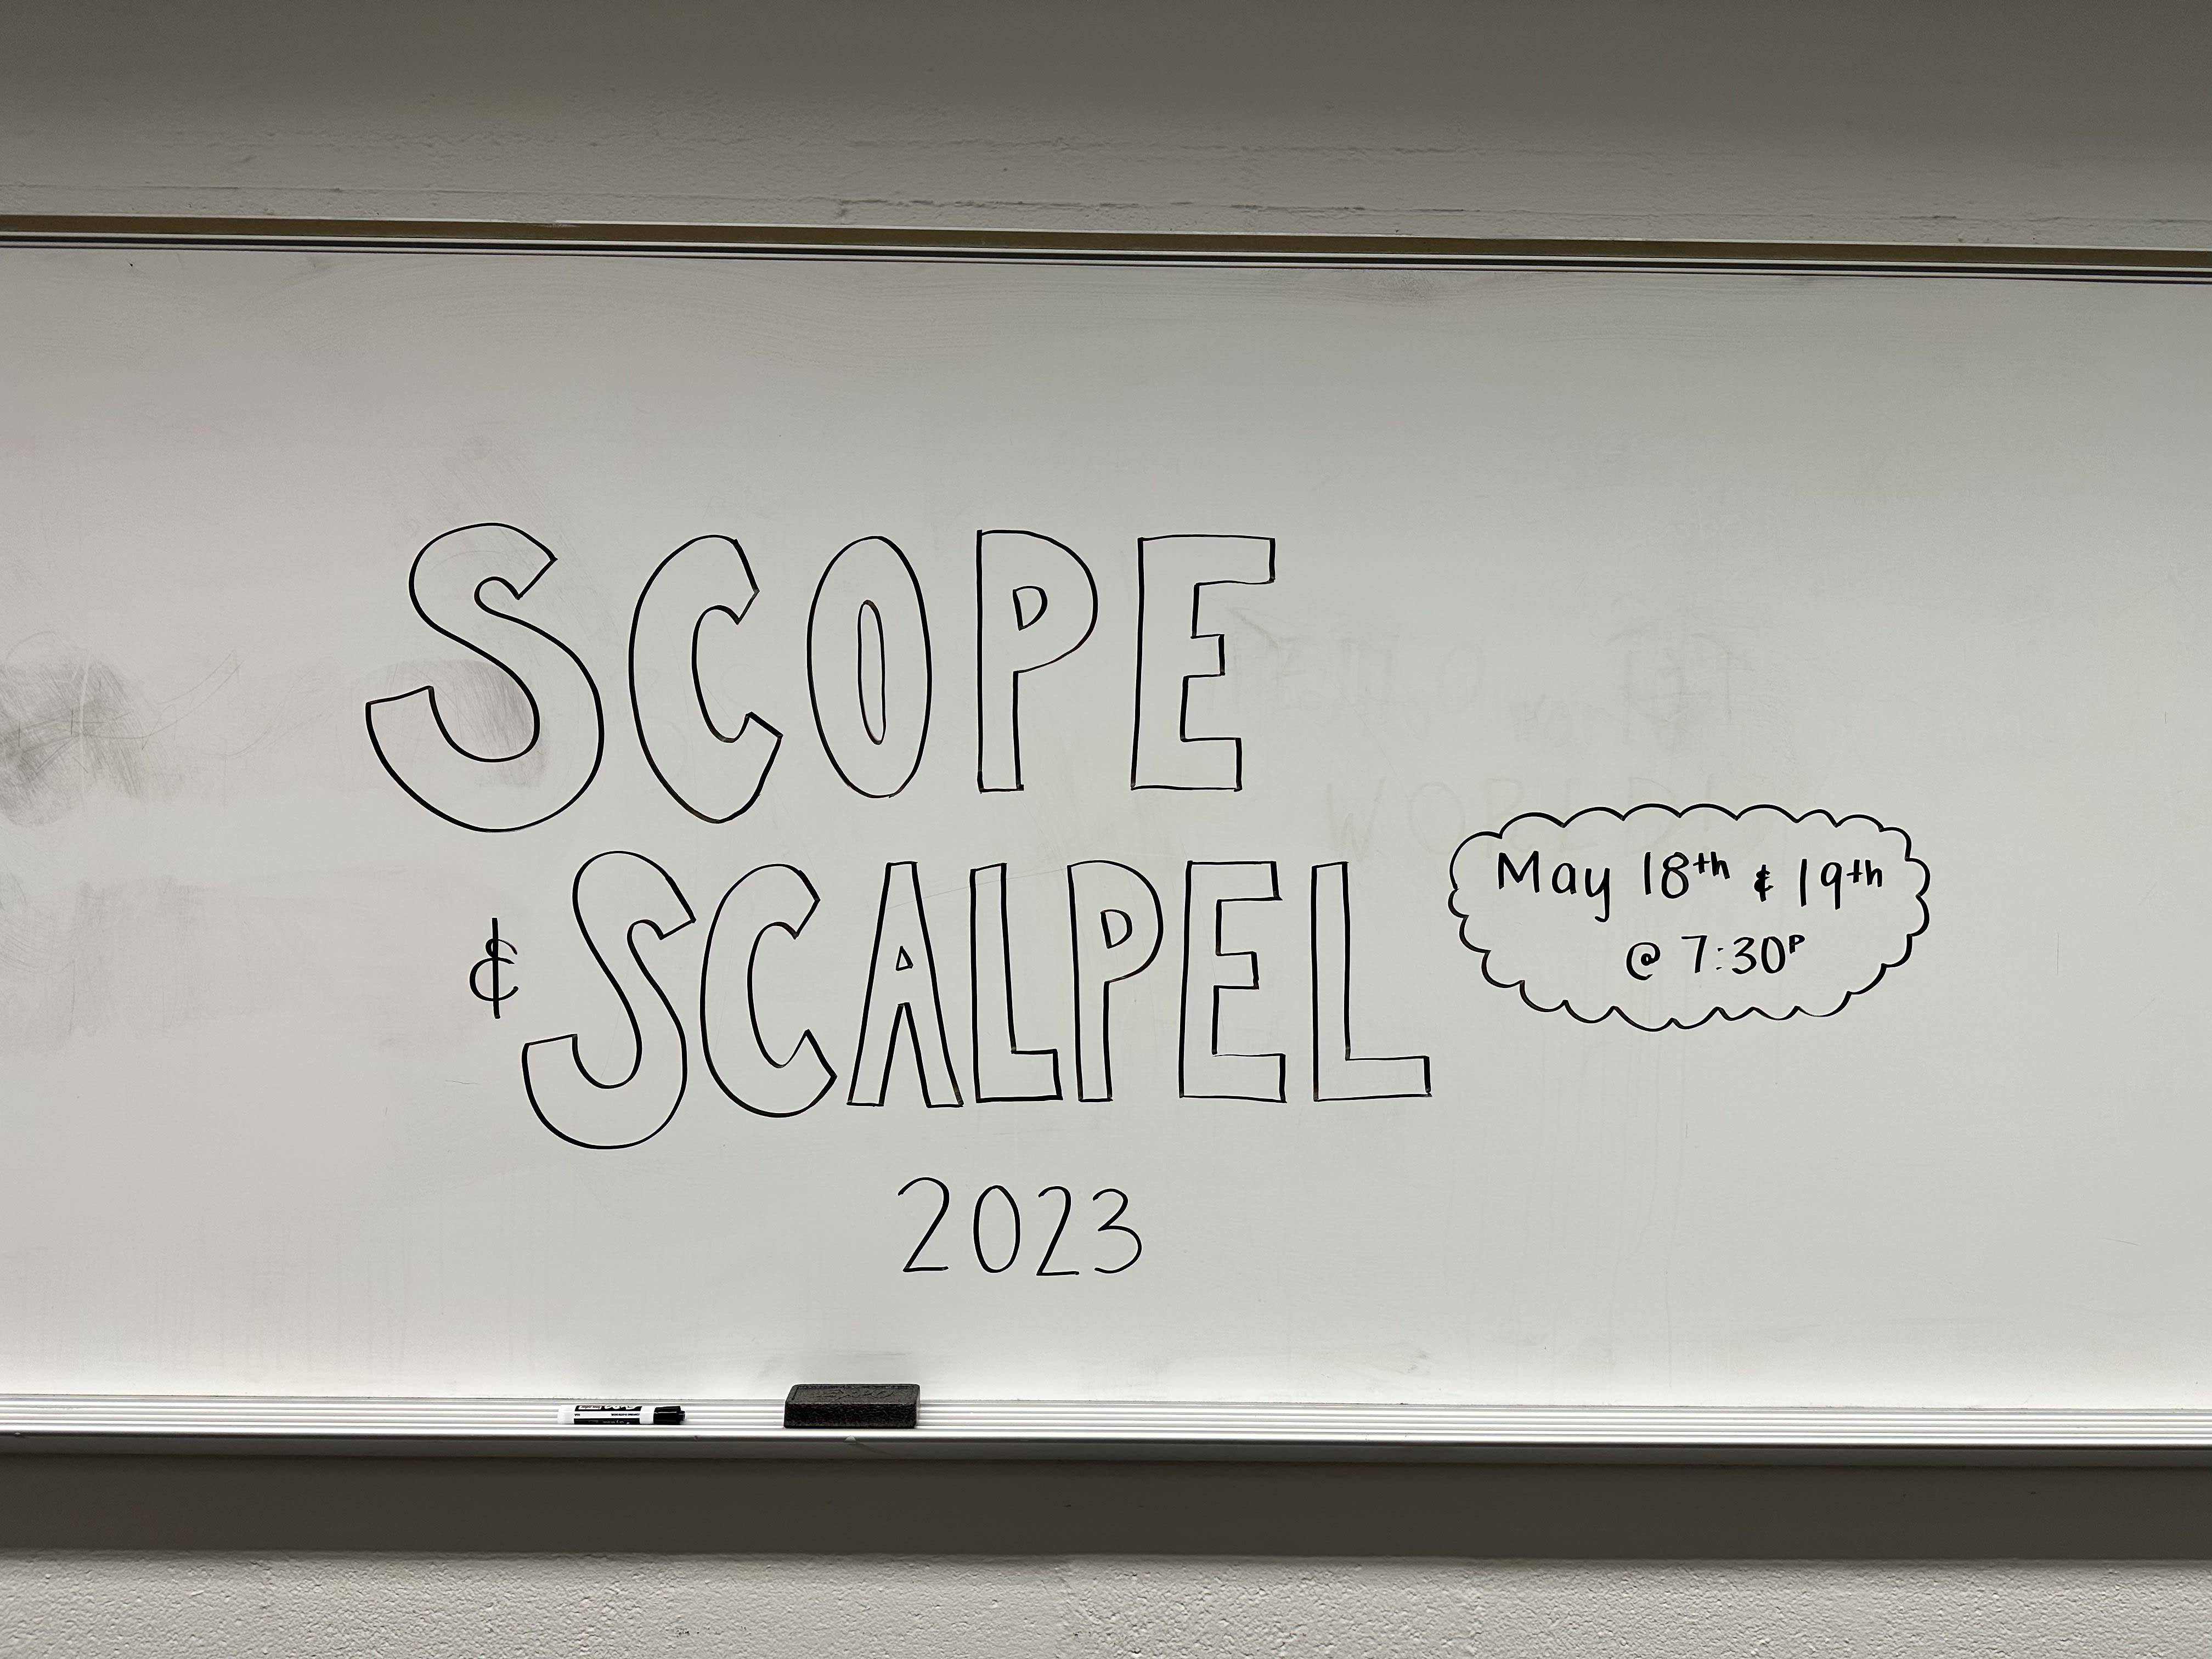 SCOPE
& SCALPEL
May 18th & 19th
@ 7:30P
2023